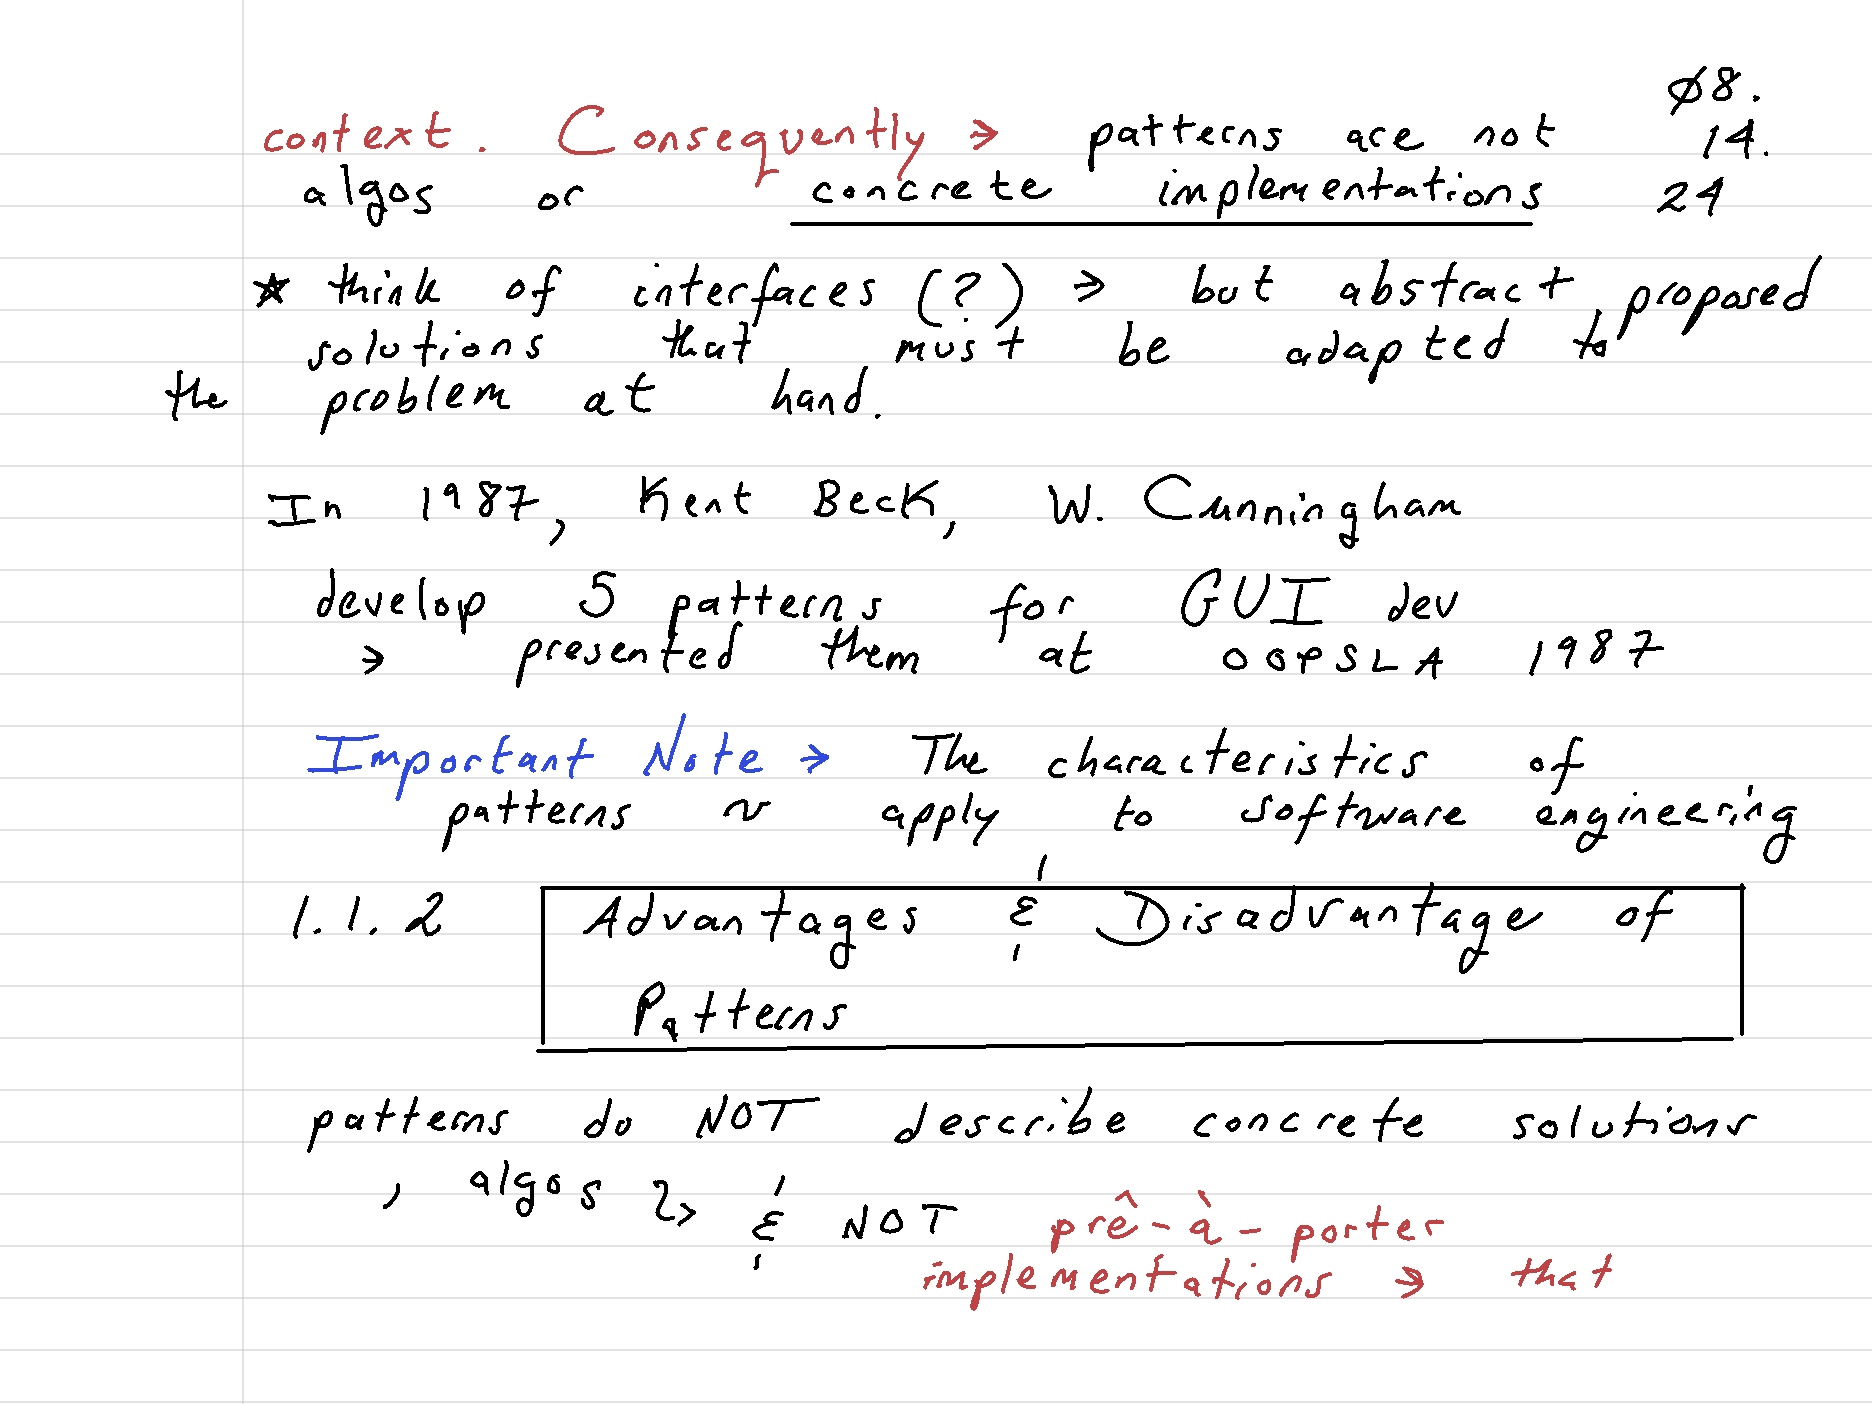 context. Consequently → patterns are not
algos or concrete implementations
ø8.
14.
24
★ think of interfaces (?) → but abstract, proposed
solutions that must be adapted to
the problem at hand.
In 1987, Kent Beck, W. Cunningham
develop 5 patterns for GUI dev
→ presented them at OOPSLA 1987
Important Note → The characteristics of
patterns ~ apply to software engineering
1.1.2 Advantages & Disadvantage of
Patterns
patterns do NOT describe concrete solutions
, algos & NOT prê-à-porter
implementations → that